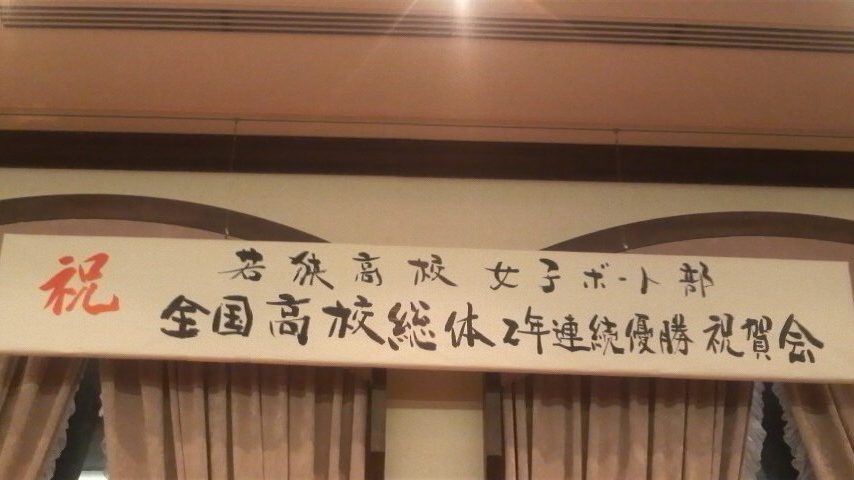 祝
若狭高校 女子ボート部
全国高校総体2年連続優勝 祝賀会